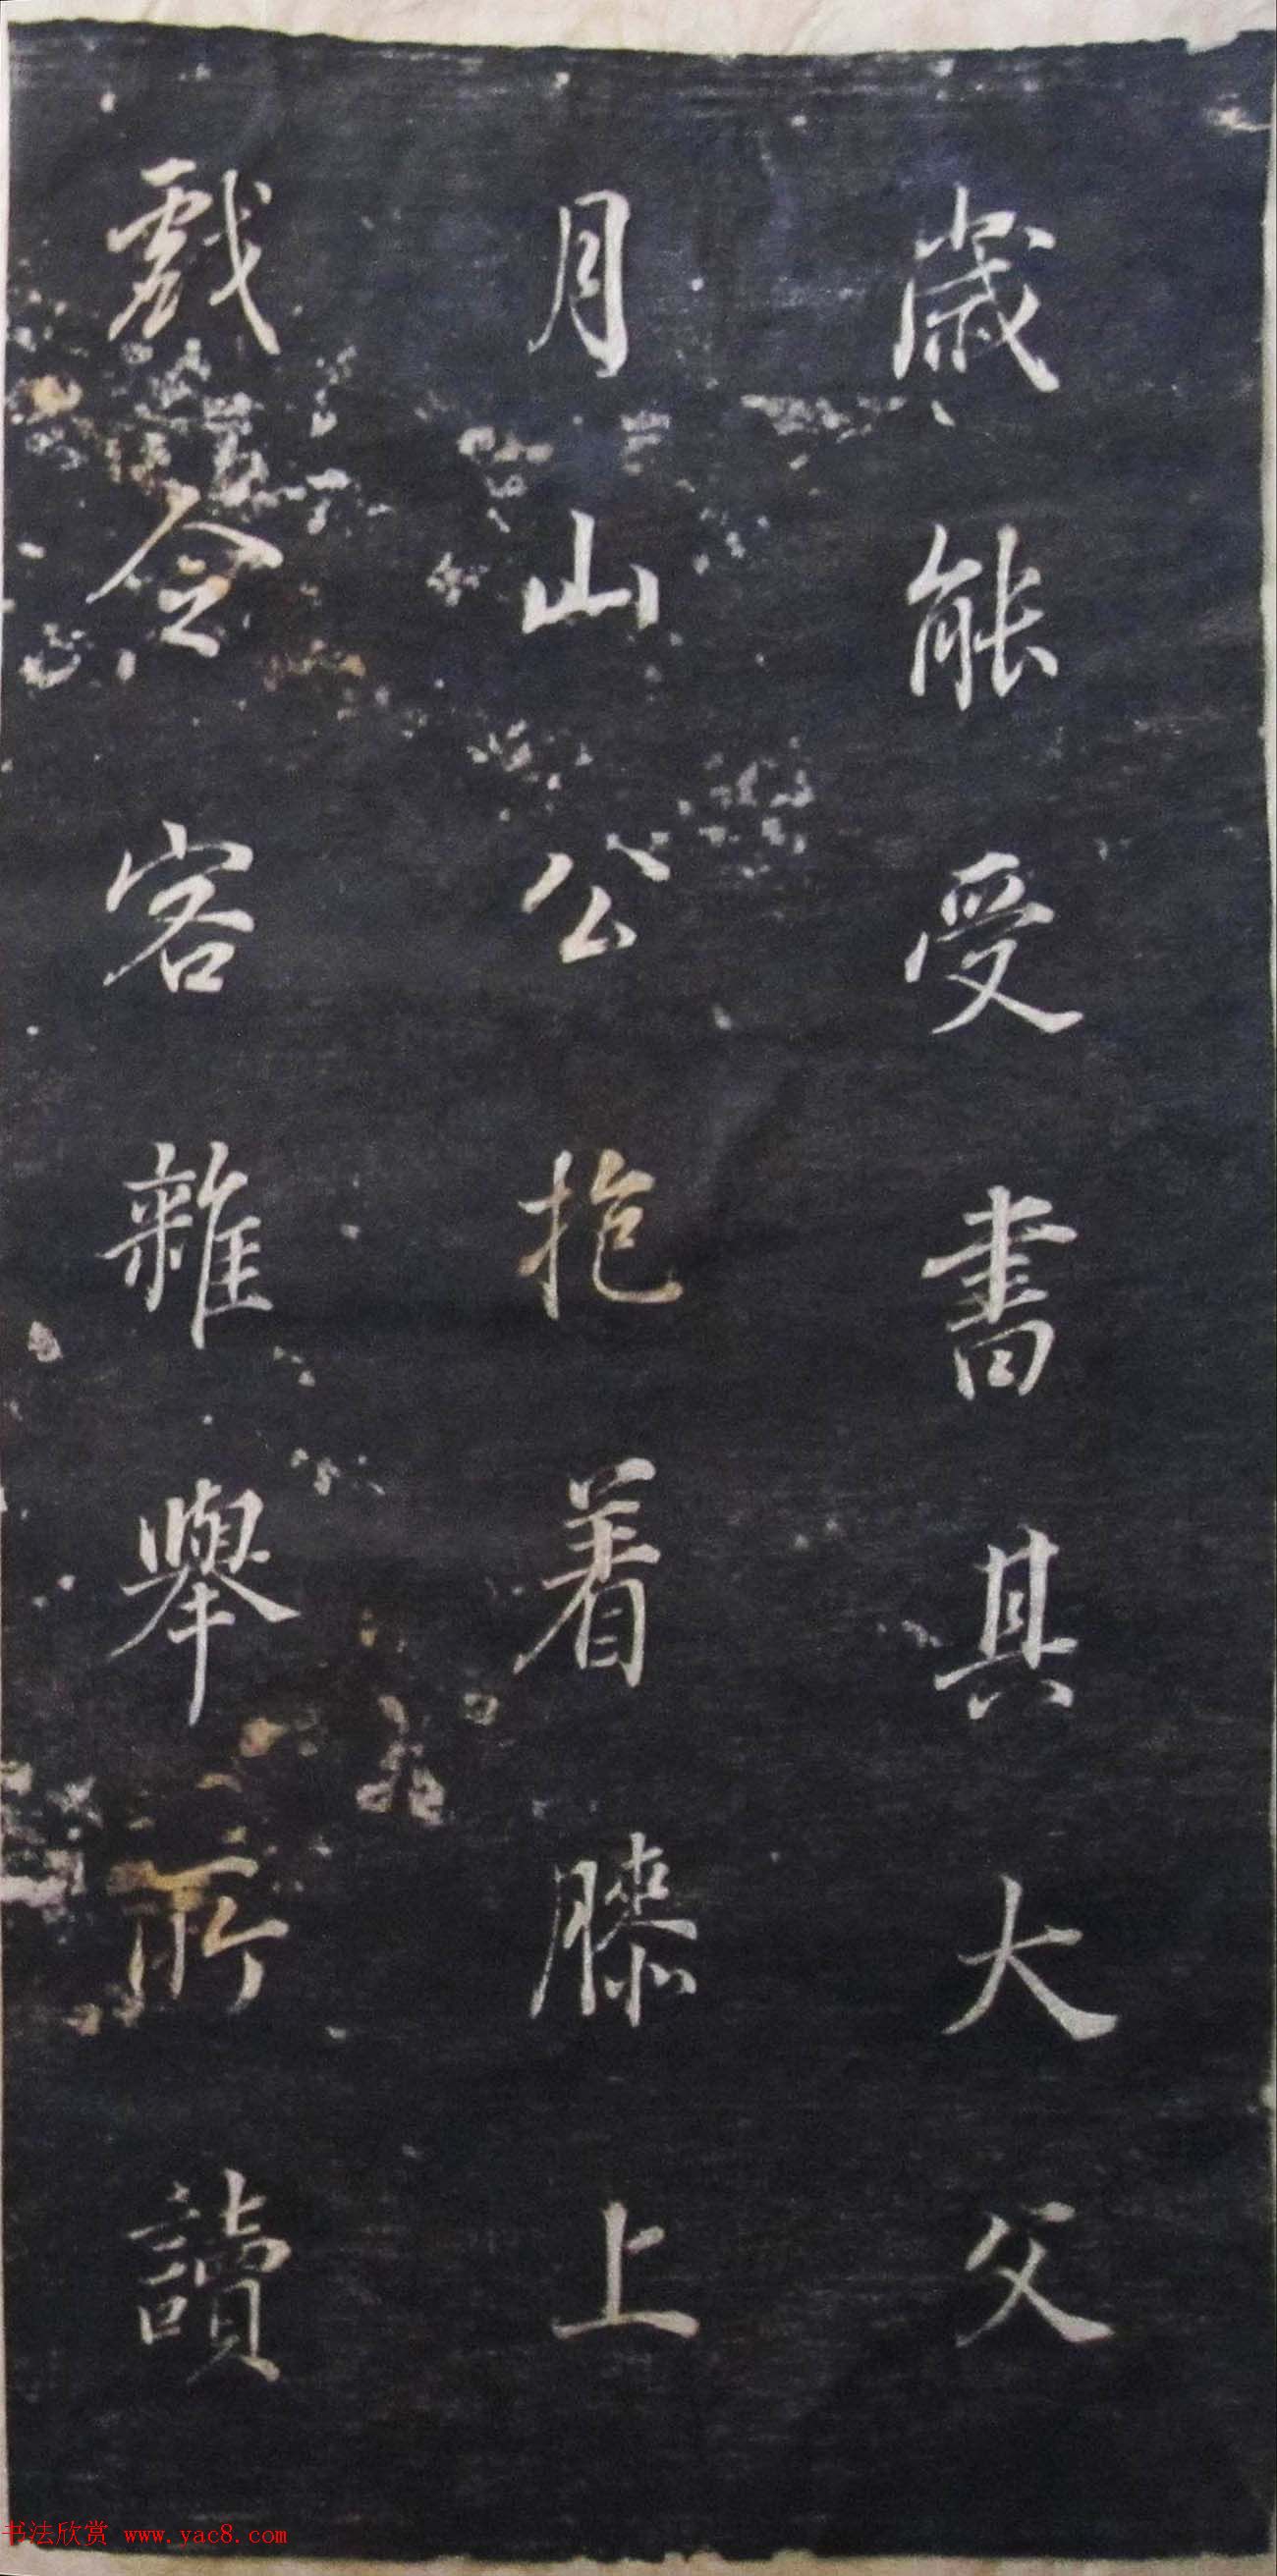 歲能受書其大父
月山公抱着膝上
戲令客雜舉所讀
书法欣赏 www.yac8.com